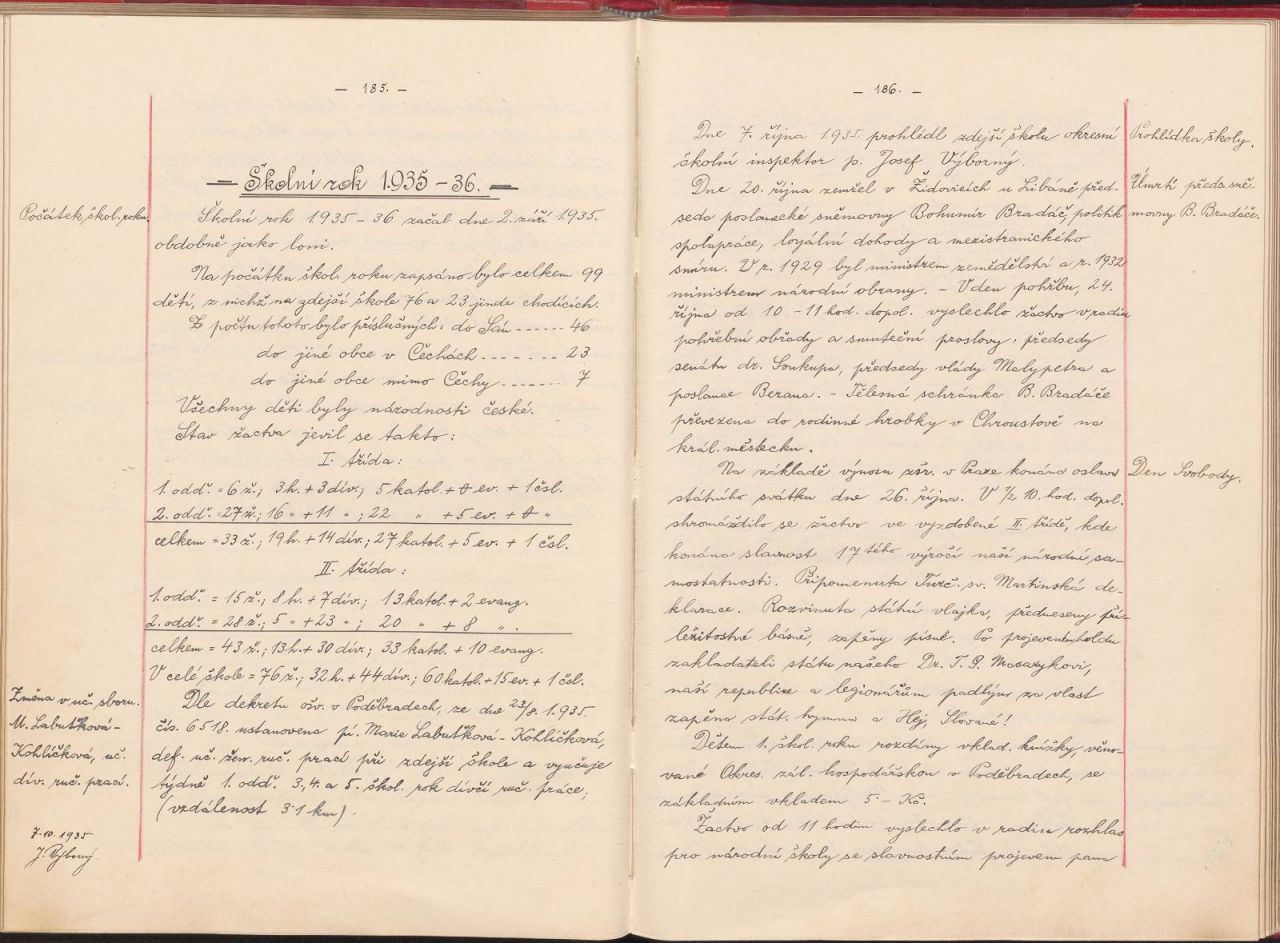 — 185. —
— Školní rok 1935-36. —
Počátek škol. roku.
Školní rok 1935-36 začal dne 2. září 1935.
obdobně jako loni.
Na počátku škol. roku zapsáno bylo celkem 99
dětí, z nichž na zdejší škole 76 a 23 jinde chodících.
Z počtu tohoto bylo příslušných: do Sán ------ 46
do jiné obce v Čechách ------- 23
do jiné obce mimo Čechy ------ 7
Všechny děti byly národnosti české.
Stav žactva jevil se takto:
I. třída:
1. odd. = 6 ž.; 3 h. + 3 dív.; 5 katol. + 0 ev. + 1 čsl.
2. odd. = 27 ž.; 16 " + 11 " ; 22 + 5 ev. + 0 "
celkem = 33 ž.; 19 h. + 14 dív.; 27 katol. + 5 ev. + 1 čsl.
II. třída:
1. odd. = 15 ž.; 8 h. + 7 dív.; 13 katol. + 2 evang.
2. odd. = 28 ž.; 5 " + 23 " ; 20 " + 8 " .
celkem = 43 ž.; 13 h. + 30 dív.; 33 katol. + 10 evang.
V celé škole = 76 ž.; 32 h. + 44 dív.; 60 katol. + 15 ev. + 1 čsl.
Změna v uč. sboru.
M. Labuťková-
Kohlíčková, uč.
dív. ruč. prací.
Dle dekretu ošv. v Poděbradech, ze dne 23/8. 1935.
čís. 6518. ustanovena pí. Marie Labuťková-Kohlíčková,
def. uč. žen. ruč. prací při zdejší škole a vyučuje
týdně 1. odd. 3., 4. a 5. škol. rok dívčí ruč. práce,
(vzdálenost 3·1 km).
7.10.1935
J. Výborný.
— 186. —
Dne 7. října 1935. prohlédl zdejší školu okresní
školní inspektor p. Josef Výborný.
Prohlídka školy.
Dne 20. října zemřel v Židovicích u Libáně před-
seda poslanecké sněmovny Bohumír Bradáč, politik
spolupráce, loyální dohody a mezistranického
smíru. V r. 1929 byl ministrem zemědělství a r. 1932
ministrem národní obrany. - V den pohřbu, 24.
října od 10 - 11 hod. dopol. vyslechlo žáctvo v radiu
pohřební obřady a smuteční proslovy: předsedy
senátu dr. Soukupa, předsedy vlády Malypetra a
poslance Berana. - Tělesná schránka B. Bradáče
převezena do rodinné hrobky v Chroustově na
král. městecku.
Úmrtí předs. sně-
movny B. Bradáče.
Na základě výnosu zšr. v Praze konána oslava
státního svátku dne 26. října. V 1/2 10. hod. dopol.
shromáždilo se žactvo ve vyzdobené II. třídě, kde
konána slavnost 17tého výročí naší národní sa-
mostatnosti. Připomenuta Turč. sv. Martinská de-
klarace. Rozvinuta státní vlajka, předneseny pří-
ležitostné básně, zapěny písně. Po projeveném holdu
zakladateli státu našeho Dr. T. G. Masarykovi,
naší republice a legionářům padlým za vlast
zapěna stát. hymna a Hej, Slované!
Den Svobody.
Dětem 1. škol. roku rozdány vklad. knížky, věno-
vané Okres. zál. hospodářskou v Poděbradech, se
základním vkladem 5·- Kč.
Žactvo od 11 hodin vyslechlo v radiu rozhlas
pro národní školy se slavnostním projevem pana